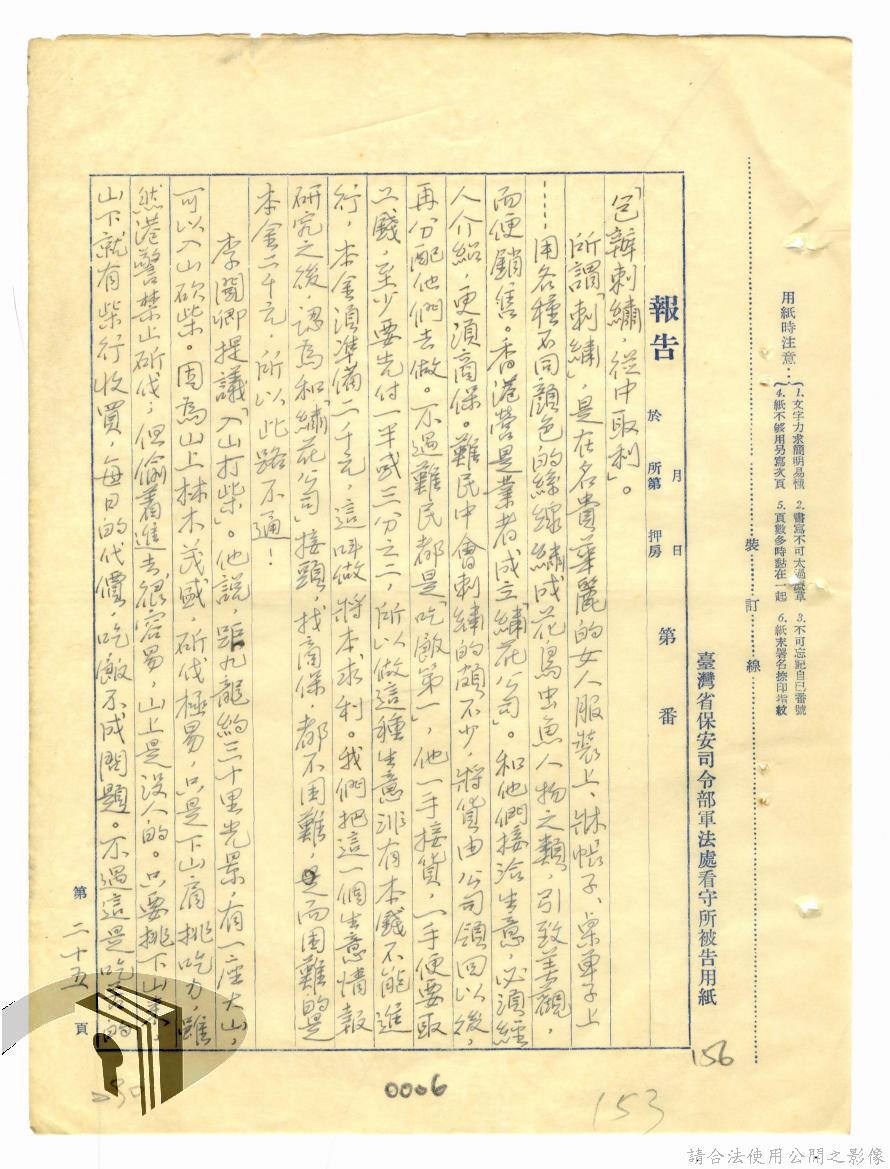 用紙時注意：
1. 文字力求簡明易懂　2. 書寫不可太過潦草　3. 不可忘記自己番號
4. 紙不够用另寫次頁　5. 頁數多時點在一起　6. 紙末署名捺印指紋
裝訂線
臺灣省保安司令部軍法處看守所被告用紙
報告　於　月　日
所第　押房　第　番
「包辦刺繡，從中取利」。
所謂「刺繡」，是在名貴華麗的女人服裝上、牀帳子、桌單子上
……用各種不同顏色的絲線繡成花鳥虫魚人物之類，引致美觀，
而便銷售。香港營是業者成立「繡花公司」。和他們接洽生意，必須經
人介紹，更須商保。難民中會刺繡的頗不少，將貨由公司領回以後，
再分配他們去做。不過難民都是「吃飯第一」，他一手接貨，一手便要取
工錢，至少要先付一半或三分之二，所以做這種生意非有本錢不能進
行，本金須準備二千元，這叫做將本求利。我們把這一個生意情報
研究之後，認為和「繡花公司」接頭，找商保，都不困難，是而困難的是
本金二千元，所以此路不通！
李閣卿提議「入山打柴」。他說，距九龍約三十里光景，有一座大山，
可以入山砍柴。因為山上林木茂盛，斫伐極易，只是下山肩挑吃力，雖
然港警禁止斫伐，但偷着進去很容易，山上是沒人的。只要挑下山來，
山下就有柴行收買，每日的代價，吃飯不成問題。不過這是吃苦的
第二十五頁
156
0006
153
請合法使用公開之影像